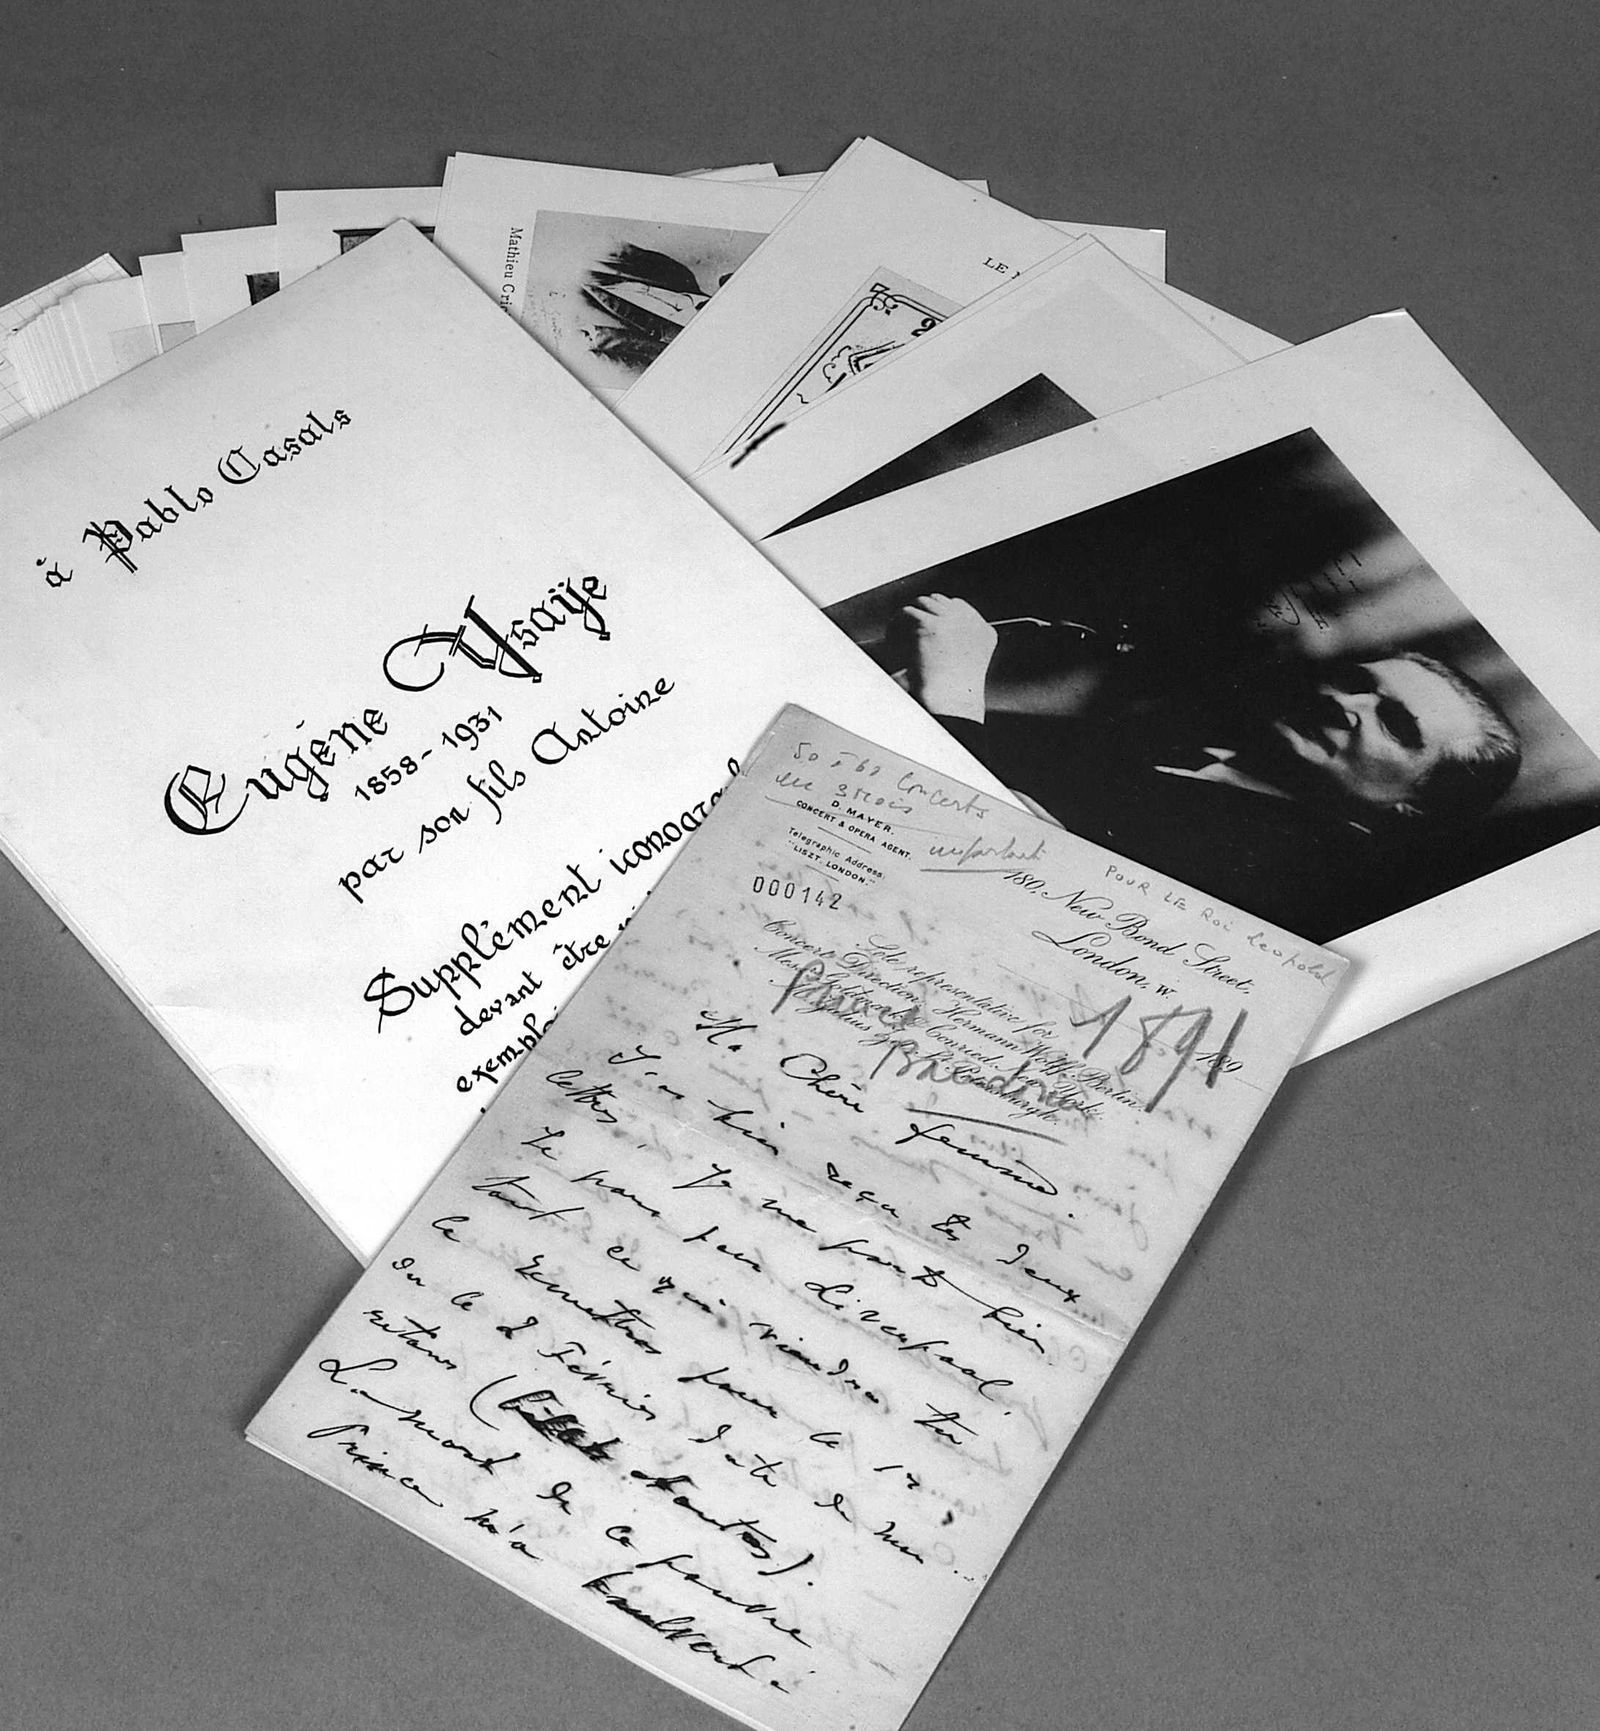 à Pablo Casals
Eugène Ysaÿe
1858-1931
par son fils Antoine
Supplément iconogra
devant être
exempl
Mathieu Cri
LE
50 à 60 Concerts
en 3 mois
important
POUR LE Roi Leopold
D. MAYER.
CONCERT & OPERA AGENT.
Telegraphic Address:
"LISZT. LONDON."
000142
180, New Bond Street,
London, W.
1891
189
Sole representative for
Concert Direction, Hermann Wolff, Berlin.
Messrs Goldmark & Conried, New York.
St Petersburgh.
Prince
Baudouin
Ma Chère femme.
J'ai bien reçu tes deux
lettres, je me porte bien
Je pars pour Liverpool
tout ce qui viendra tu
le remettras pour le 12
ou le 2 Février date de mon
retour
La mort de ce pauvre
Prince m'a bouleversé